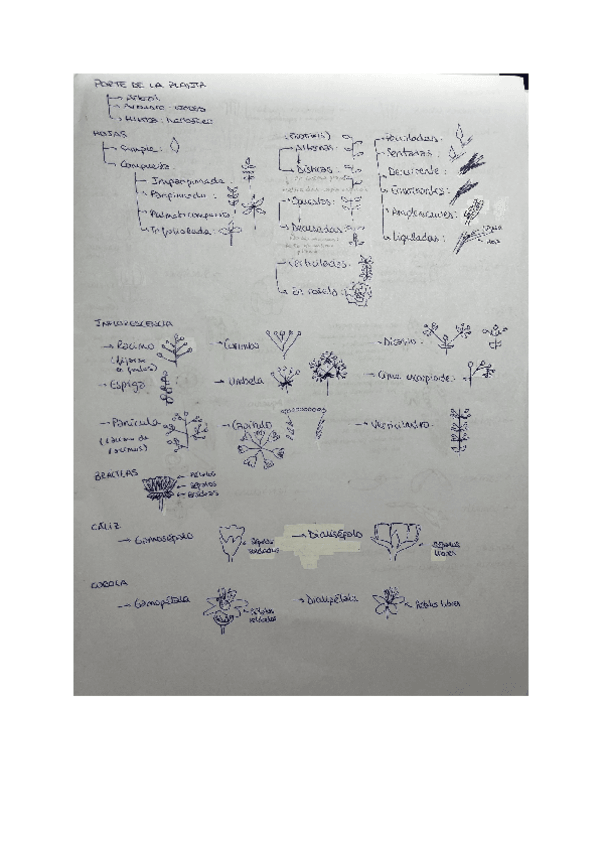 PORTE DE LA PLANTA
Árbol
Arbusto:
Hierba: herbáceo
HOJAS
Simple:
Compuesta
Imparipinnada:
Paripinnada:
Palmaticompuesta
Trifoliolada:
Alternas:
Dísticas:
Opuestas:
Decusadas:
Verticiladas:
En roseta:
Pecioladas:
Sentadas:
Decurrente:
Envainantes:
Amplexicaules:
Liguladas:
INFLORESCENCIA
→ Racimo
→ Espiga
→ Panícula
(racimo de
racimos)
→ Corimbo
→ Umbela
→ Dicasio:
→ Cima escorpioide:
→ Verticilastro
BRÁCTEAS
← Pétalos
← Sépalos
← Brácteas
CÁLIZ
→ Gamosépalo
Sépalos
soldados
→ Dialisépalo
Sépalos
libres
COROLA
→ Gamopétala
Pétalos
soldados
→ Dialipétala
Pétalos libres